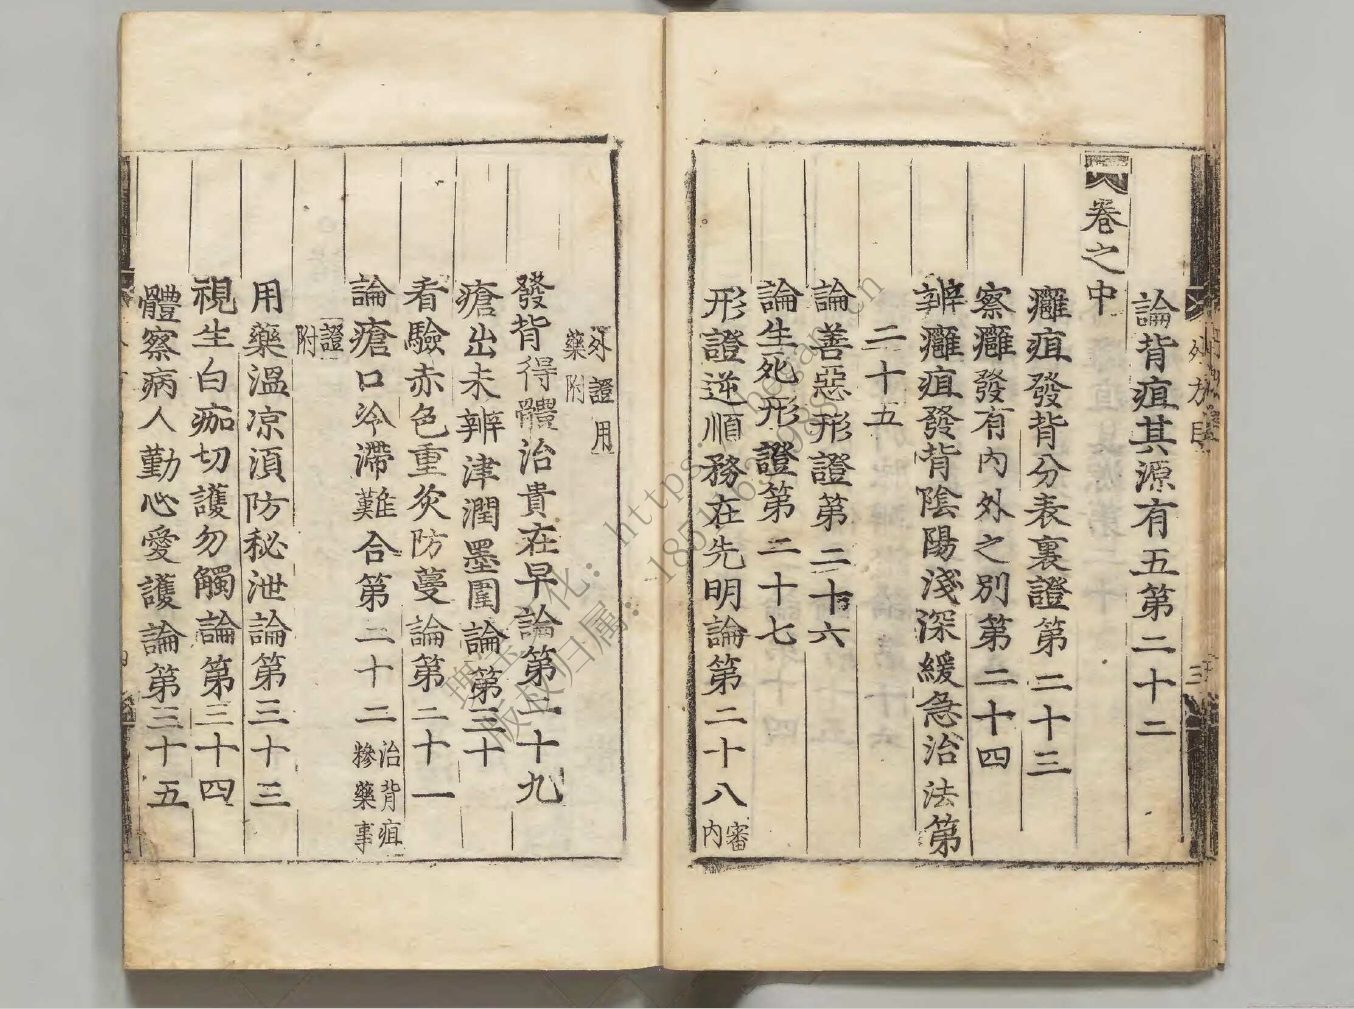 論背疽其源有五第二十二
卷之中
癰疽發背分表裏證第二十三
察癰發有內外之別第二十四
辨癰疽發背陰陽淺深緩急治法第
二十五
論善惡形證第二十六
論生死形證第二十七
形證逆順務在先明論第二十八審
內
外證用
藥附
發背得體治貴在早論第二十九
瘡出未辨津潤墨圍論第三十
看驗赤色重灸防蔓論第二十一
論瘡口冷滯難合第二十二治背疽
糝藥事
證
附
用藥溫凉須防秘泄論第三十三
視生白痂切護勿觸論第三十四
體察病人勤心愛護論第三十五